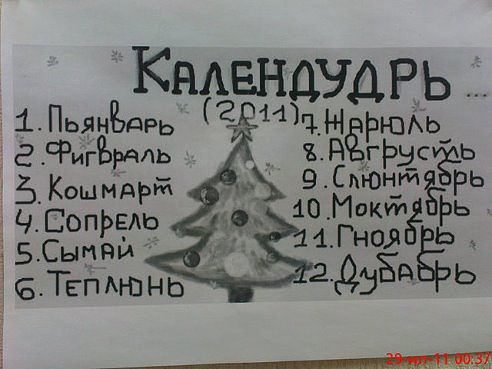 Календудрь ...
(2011)
1. Пьянварь
2. Фигвраль
3. Кошмарт
4. Сопрель
5. Сымай
6. Теплюнь
7. Жарюль
8. Авгрусть
9. Слюнтябрь
10. Моктябрь
11. Гноябрь
12. Дубабрь
29-июл-11 00:37